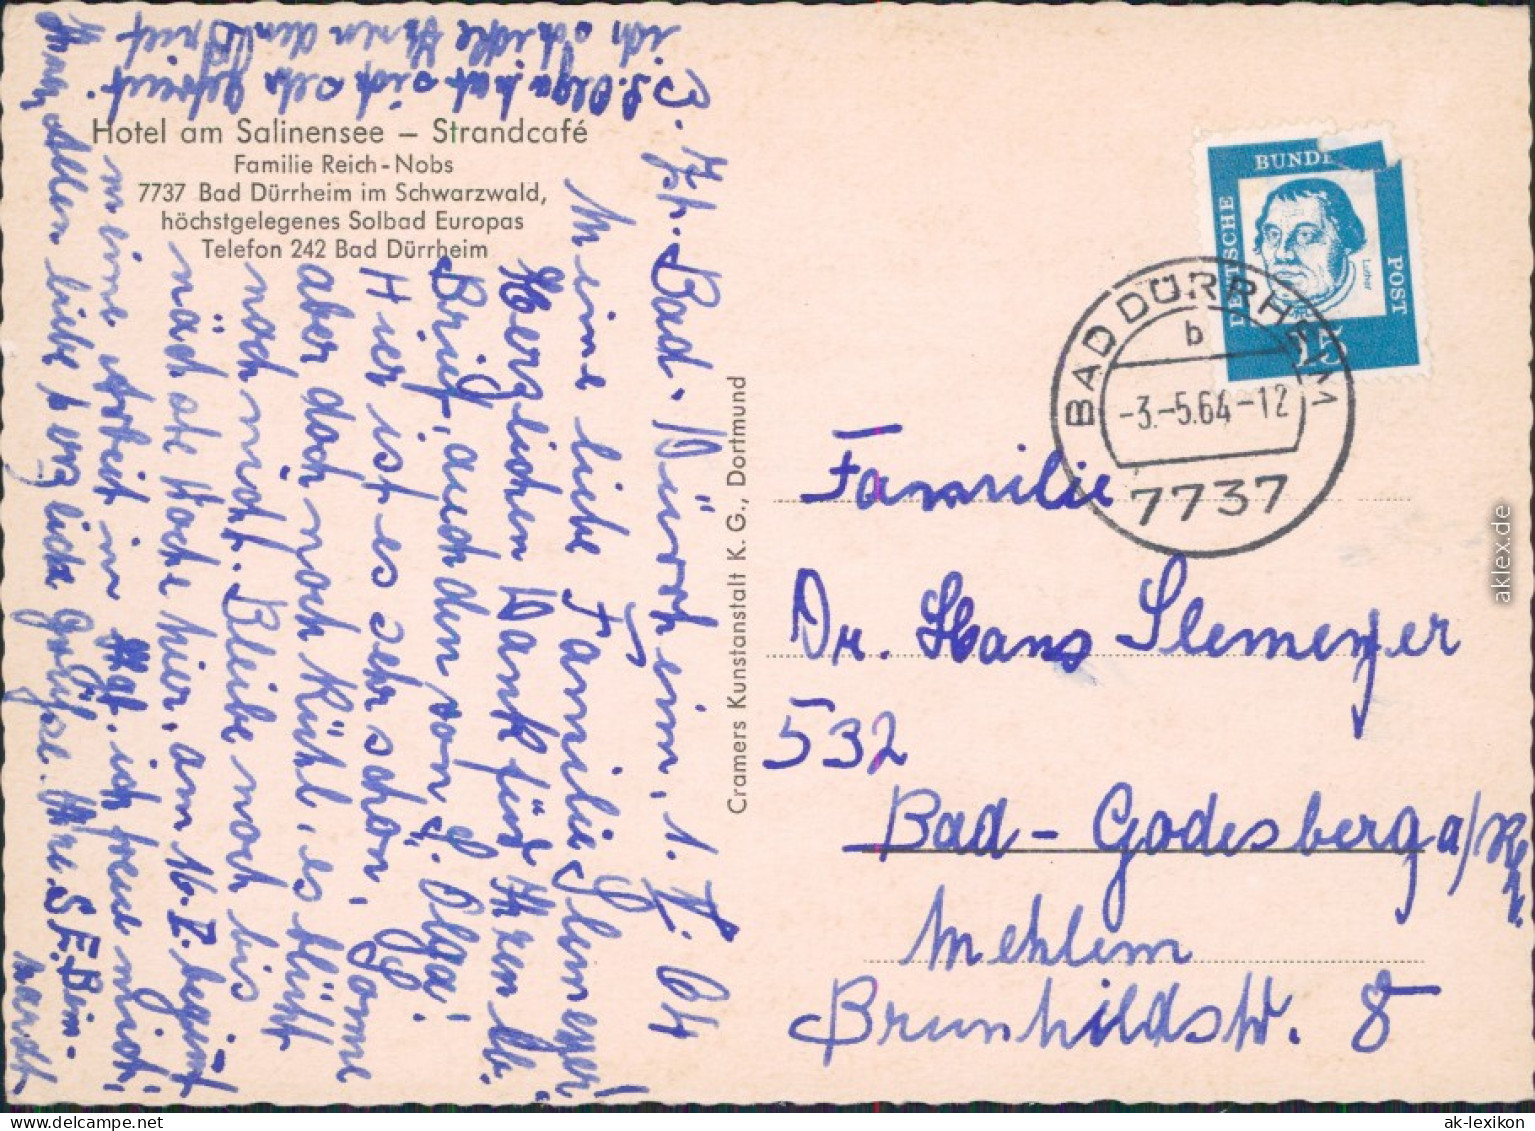 Hotel am Salinensee – Strandcafé
Familie Reich-Nobs
7737 Bad Dürrheim im Schwarzwald,
höchstgelegenes Solbad Europas
Telefon 242 Bad Dürrheim
z. Zt. Bad. Dürrheim, 1. V. 64
Meine liebe Familie Slemeyer!
Herzlichen Dank für Ihren lb.
Brief, auch den von S. Olga!
Hier ist es sehr schön, Sonne
aber doch noch kühl, es blüht
noch nicht. Bleibe noch bis
nächste Woche hier, am 16. V. beginnt
meine Arbeit in ich freue mich!
Ihnen Allen liebe herzliche Grüße. Ihre S. E. Bern-
hardt
S. Olga hat sich sehr gefreut.
ich schicke Ihnen den Brief
Cramers Kunstanstalt K. G., Dortmund
DEUTSCHE BUNDE POST
Luther
15
BAD DÜRRHEIM
b
-3.-5.64-12
7737
Familie
Dr. Hans Slemeyer
532
Bad-Godesberg a/Rh.
Mehlem
Brunhildstr. 8
aklex.de
ak-lexikon